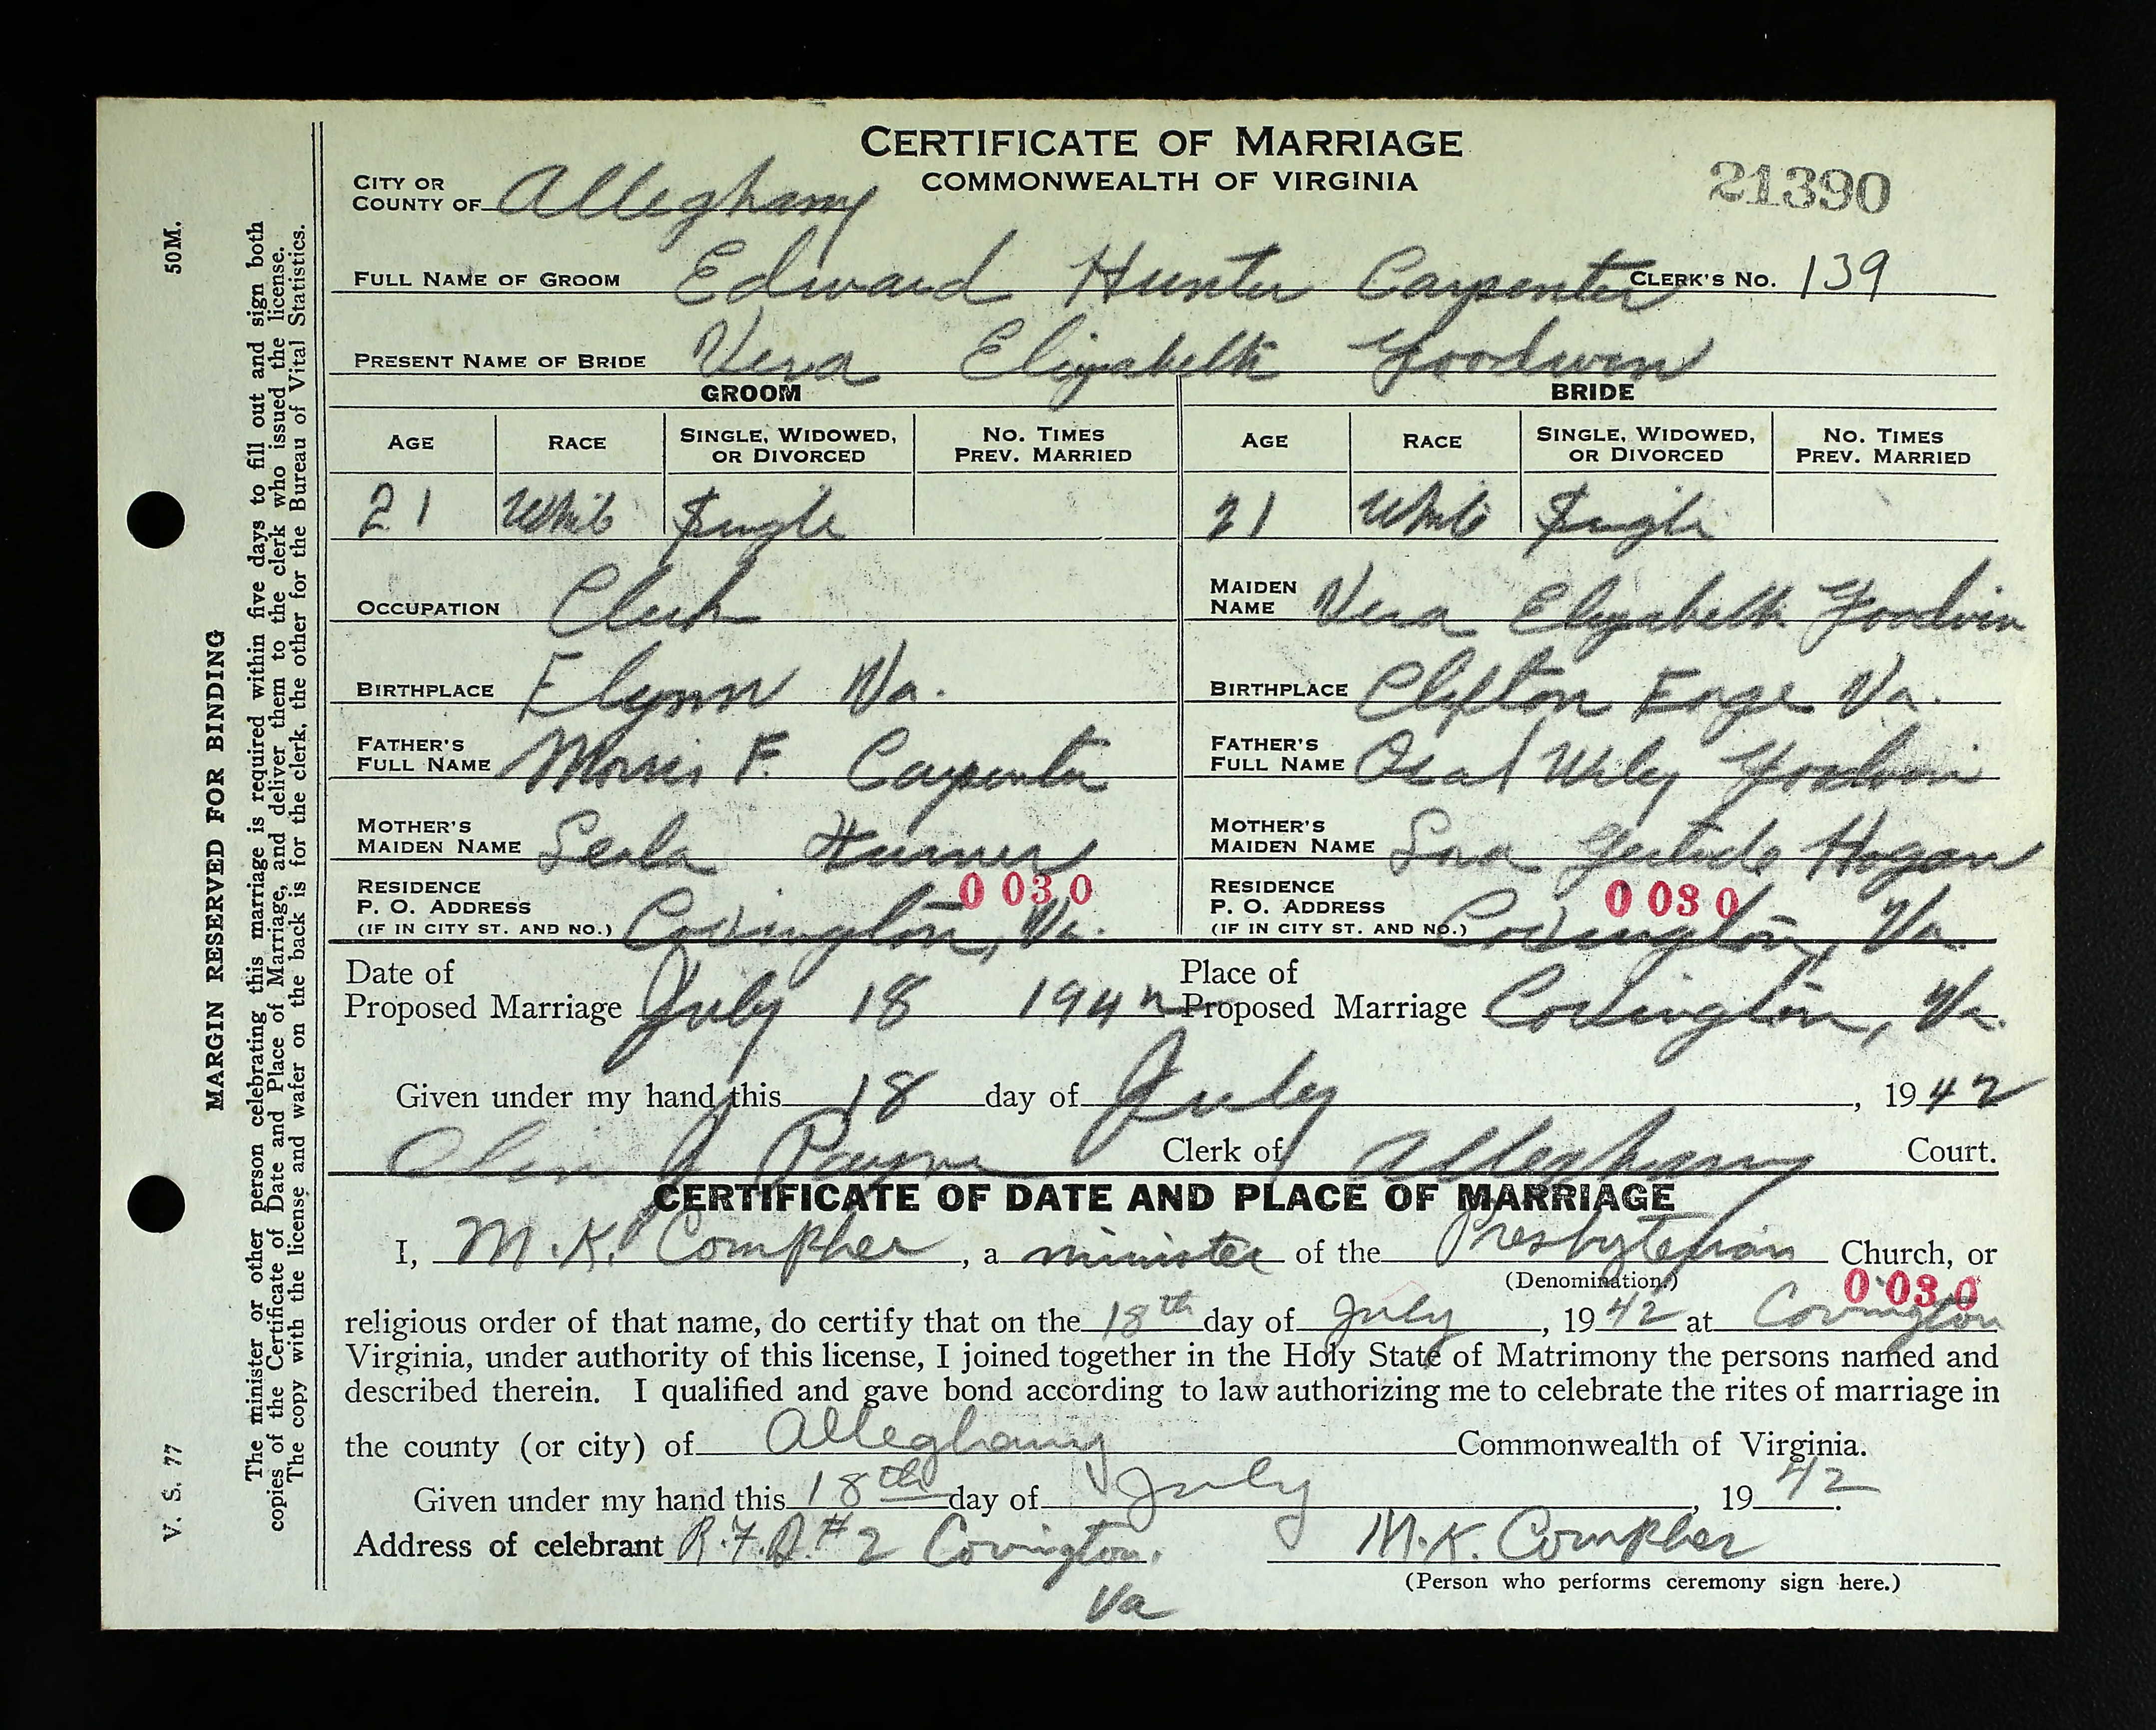 CERTIFICATE OF MARRIAGE
COMMONWEALTH OF VIRGINIA
21390
CITY OR COUNTY OF Alleghany
FULL NAME OF GROOM Edward Hunter Carpenter CLERK'S NO. 139
PRESENT NAME OF BRIDE Vera Elizabeth Goodwin
GROOM BRIDE
AGE RACE SINGLE, WIDOWED, OR DIVORCED NO. TIMES PREV. MARRIED AGE RACE SINGLE, WIDOWED, OR DIVORCED NO. TIMES PREV. MARRIED
21 White Single 21 White Single
OCCUPATION Clerk MAIDEN NAME Vera Elizabeth Goodwin
BIRTHPLACE Flynn Va. BIRTHPLACE Clifton Forge Va.
FATHER'S FULL NAME Morris F. Carpenter FATHER'S FULL NAME Wiley Goodwin
MOTHER'S MAIDEN NAME MOTHER'S MAIDEN NAME Gertrude Hogan
0 030 0 030
RESIDENCE P. O. ADDRESS (IF IN CITY ST. AND NO.) Covington, Va. RESIDENCE P. O. ADDRESS (IF IN CITY ST. AND NO.) Covington, Va.
Date of Proposed Marriage July 18 1942 Place of Proposed Marriage Covington, Va.
Given under my hand this 18 day of July, 1942
Payne Clerk of Alleghany Court.
CERTIFICATE OF DATE AND PLACE OF MARRIAGE
I, M. K. Compher, a minister of the Presbyterian Church, or
(Denomination.)
0 030
religious order of that name, do certify that on the 18th day of July, 1942 at Covington
Virginia, under authority of this license, I joined together in the Holy State of Matrimony the persons named and
described therein. I qualified and gave bond according to law authorizing me to celebrate the rites of marriage in
the county (or city) of Alleghany Commonwealth of Virginia.
Given under my hand this 18th day of July, 1942.
Address of celebrant R.F.D. #2 Covington, Va M. K. Compher
(Person who performs ceremony sign here.)
V. S. 77 50M.
MARGIN RESERVED FOR BINDING
The minister or other person celebrating this marriage is required within five days to fill out and sign both
copies of the Certificate of Date and Place of Marriage, and deliver them to the clerk who issued the license.
The copy with the license and wafer on the back is for the clerk, the other for the Bureau of Vital Statistics.